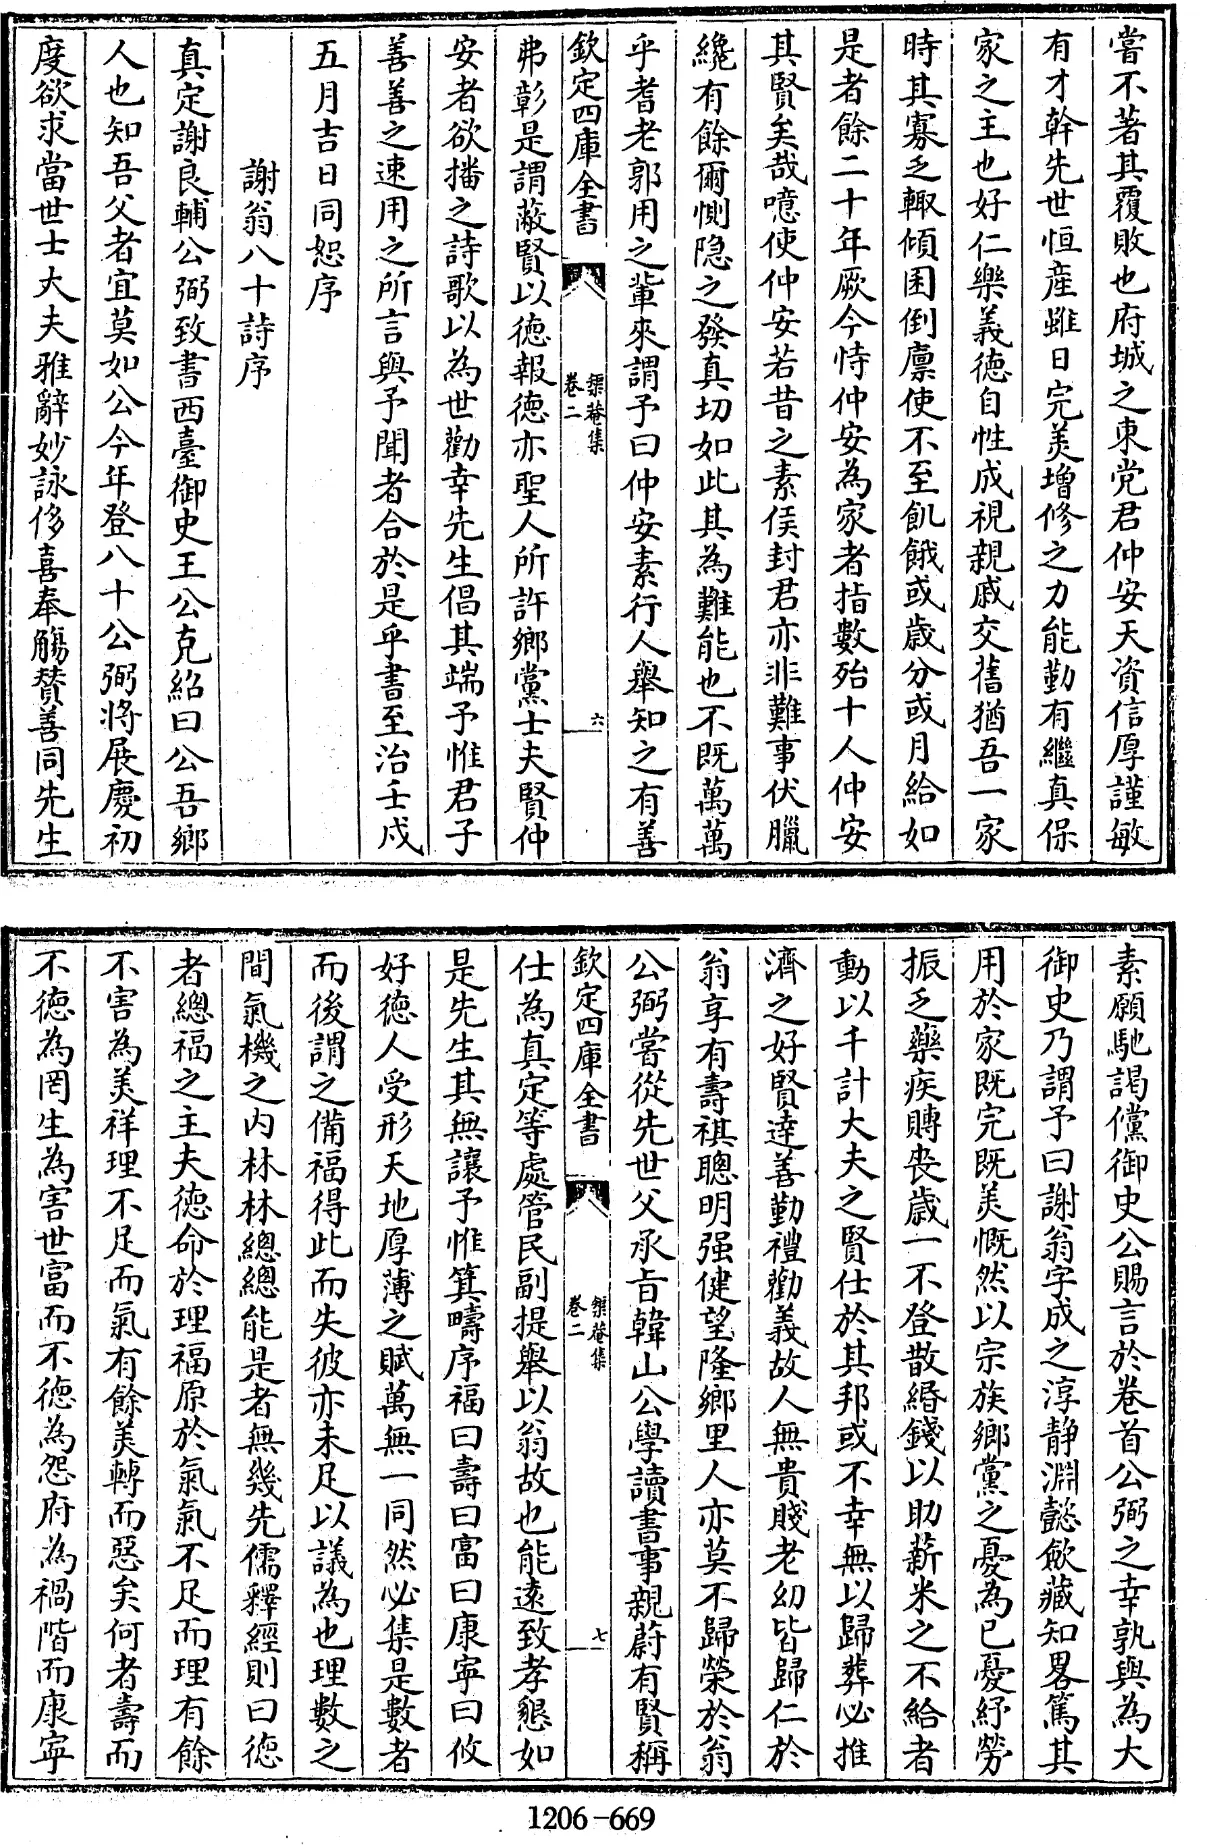 嘗不著其覆敗也府城之東党君仲安天資信厚謹敏
有才幹先世恒産雖日完美增修之力能勤有繼真保
家之主也好仁樂義德自性成視親戚交舊猶吾一家
時其寡乏輙傾囷倒廪使不至飢餓或歲分或月給如
是者餘二十年厥今恃仲安為家者指數殆十人仲安
其賢矣哉噫使仲安若昔之素侯封君亦非難事伏臘
纔有餘爾惻隐之發真切如此其為難能也不既萬萬
乎耆老郭用之輩來謂予曰仲安素行人舉知之有善
欽定四庫全書
榘菴集
卷二
六
弗彰是謂蔽賢以德報德亦聖人所許鄉黨士夫賢仲
安者欲播之詩歌以為世勸幸先生倡其端予惟君子
善善之速用之所言與予聞者合於是乎書至治壬戌
五月吉日同恕序
謝翁八十詩序
真定謝良輔公弼致書西臺御史王公克紹曰公吾鄉
人也知吾父者宜莫如公今年登八十公弼將展慶初
度欲求當世士大夫雅辭妙詠侈喜奉觴賛善同先生
素願馳謁儻御史公賜言於卷首公弼之幸孰與為大
御史乃謂予曰謝翁字成之淳静淵懿歛藏知畧篤其
用於家既完既美慨然以宗族鄉黨之憂為已憂紓勞
振乏藥疾賻丧歲一不登散緡錢以助薪米之不給者
動以千計大夫之賢仕於其邦或不幸無以歸葬必推
濟之好賢逹善勤禮勸義故人無貴賤老幼皆歸仁於
翁享有壽祺聰明强健望隆鄉里人亦莫不歸榮於翁
公弼嘗從先世父承旨韓山公學讀書事親蔚有賢稱
欽定四庫全書
榘菴集
卷二
七
仕為真定等處管民副提舉以翁故也能遠致孝懇如
是先生其無讓予惟箕疇序福曰壽曰富曰康寕曰攸
好德人受形天地厚薄之賦萬無一同然必集是數者
而後謂之備福得此而失彼亦未足以議為也理數之
間氣機之内林林總總能是者無幾先儒釋經則曰德
者總福之主夫德命於理福原於氣氣不足而理有餘
不害為美祥理不足而氣有餘美轉而惡矣何者壽而
不德為罔生為害世富而不德為怨府為禍階而康寕
1206-669